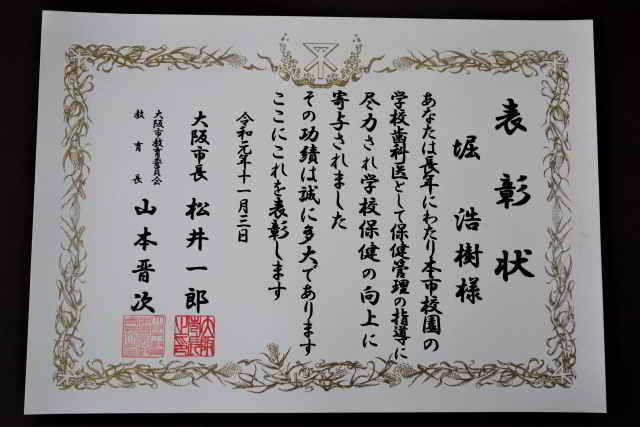 表彰状
堀 浩樹様
あなたは長年にわたり本市校園の
学校歯科医として保健管理の指導に
尽力され学校保健の向上に
寄与されました
その功績は誠に多大であります
ここにこれを表彰します
令和元年十一月三日
大阪市長 松井一郎
大阪市教育委員会
教育長 山本晋次